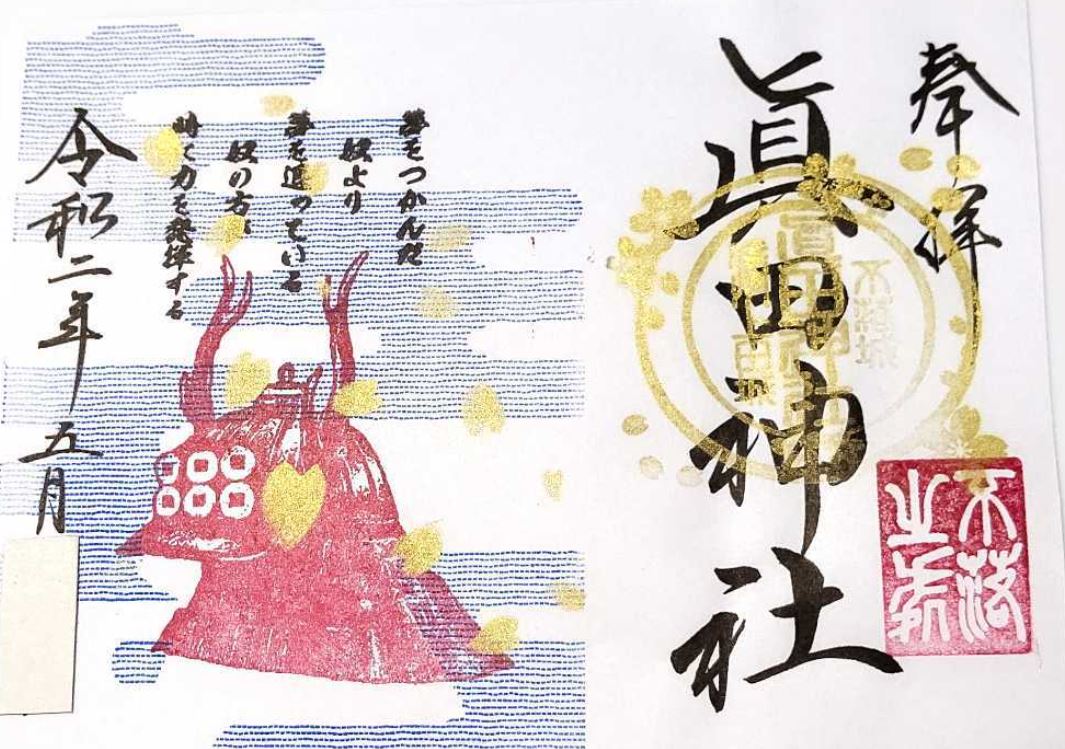 奉拝
眞田神社
不落城
不落
之城
夢をつかんだ
奴より
夢を追っている
奴の方が
時に力を発揮する
令和二年五月